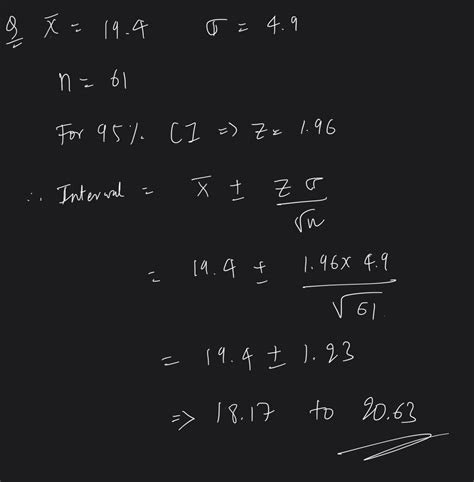 Q x̄ = 19.4 σ = 4.9
n = 61
For 95% CI => Z = 1.96
∴ Interval = x̄ ± Zσ/√n
= 19.4 ± 1.96 x 4.9/√61
= 19.4 ± 1.23
=> 18.17 to 20.63